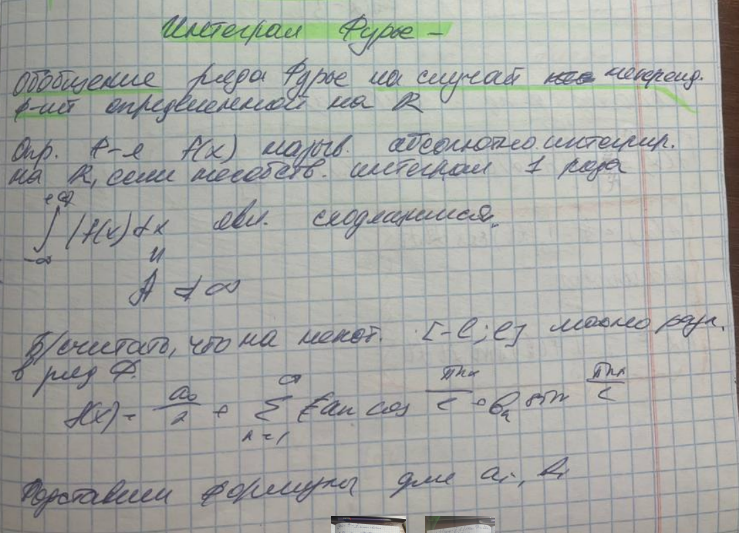 Интеграл Фурье –
Обобщение ряда Фурье на случай неперiод.
ф-ий определенной на R
Опр. f-я f(x) назыв. абсолютно интегрир.
на R, если несобств. интеграл 1 рода
+∞
∫ |f(x)|dx явл. сходящимся.
-∞
"
A ≠ ∞
Б/считать, что на некот. [-l; l] можно разл.
в ряд Ф.
f(x) = a₀/2 + ∑ₙ₌₁^∞ [aₙ cos πnx/l + bₙ sin πnx/l
Подставим формулы для aᵢ, bᵢ